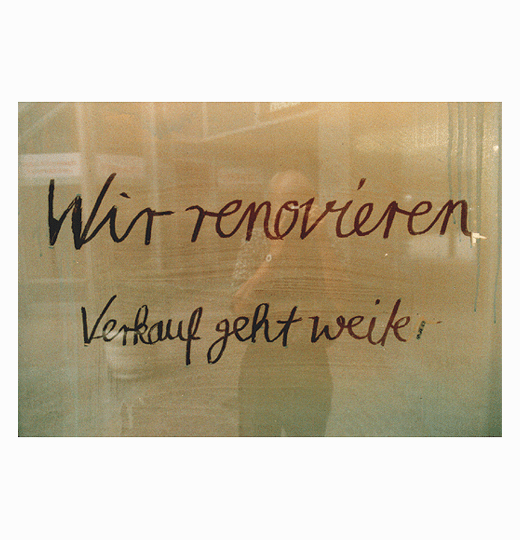 Wir renovieren
Verkauf geht weiter